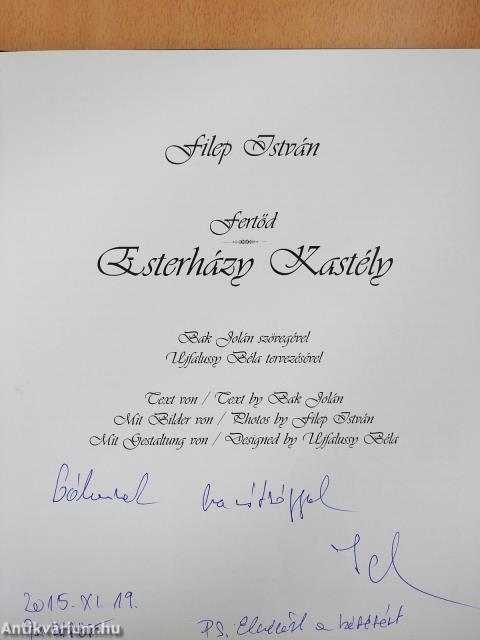 Filep István
Fertőd
Esterházy Kastély
Bak Jolán szövegével
Ujfalussy Béla tervezésével
Text von / Text by Bak Jolán
Mit Bilder von / Photos by Filep István
Mit Gestaltung von / Designed by Ujfalussy Béla
barátsággal
2015. XI. 19.
PS. a késésért
Antikvárium.hu